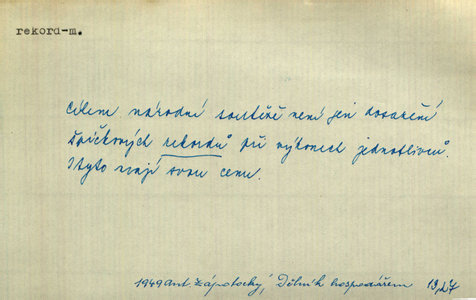 rekord-m.
Cílem národní soutěže není jen dosažení
špičkových rekordů při výkonech jednotlivců.
I tyto mají svou cenu.
1949 Ant. Zápotocký, Dělník hospodářem 13,27